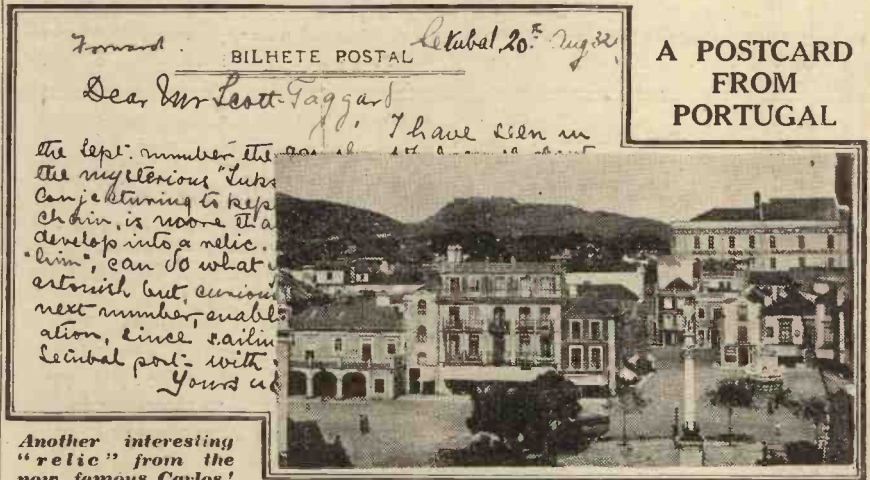 Forward.
BILHETE POSTAL
Setubal, 20th Aug 32
A POSTCARD
FROM
PORTUGAL
Dear Mr Scott-Taggart
I have seen in
the Sept. number the
the mysterious
conjecturing to kep
chain, is moore tha
develop into a relic.
"him", can do what
astonish but, curious
next number, enabl
ation, since sailin
Setubal port- with
Yours
Another interesting
"relic" from the
now famous Carlos!